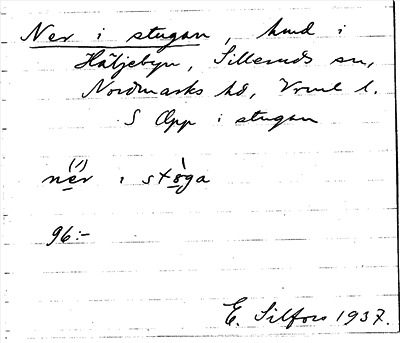 Ner i stugan, hmd i
Hättjebyn, Silleruds sn,
Nordmarks hd, Vrml l.
S Opp i stugan
ner i stöga
96:-
E. Silfors 1937.